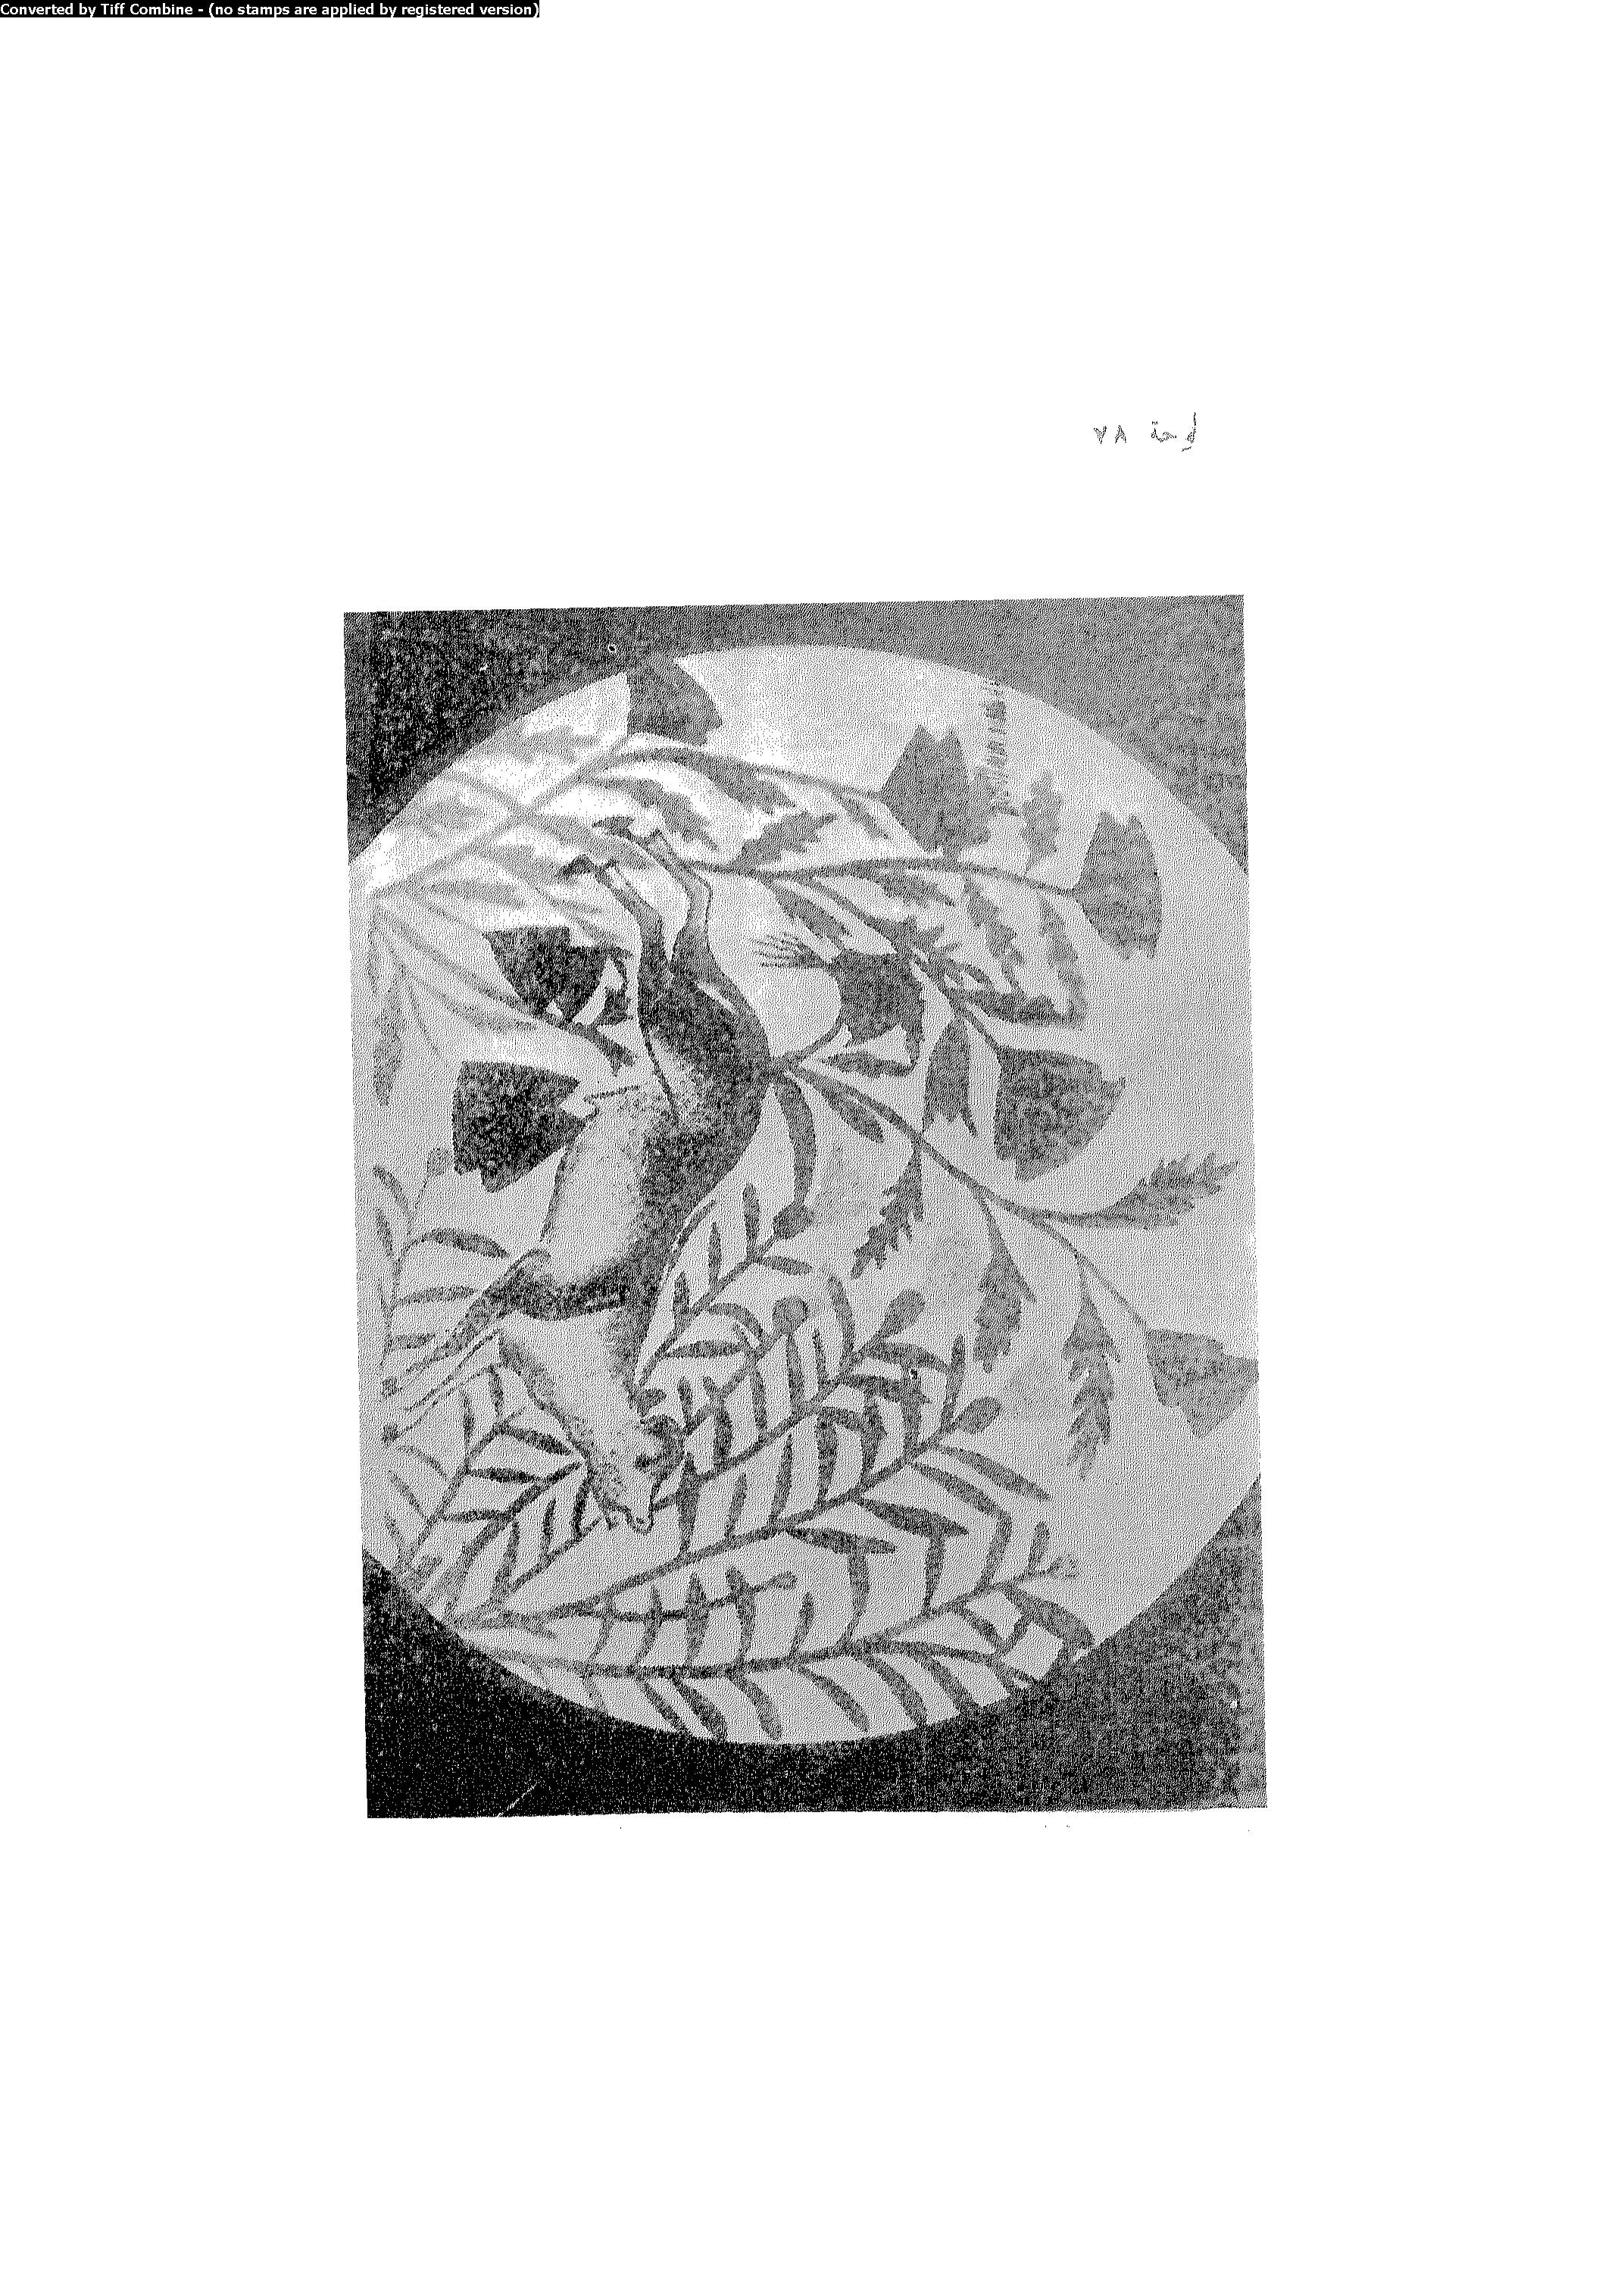 Converted by Tiff Combine - (no stamps are applied by registered version)
لوحة ٧٨